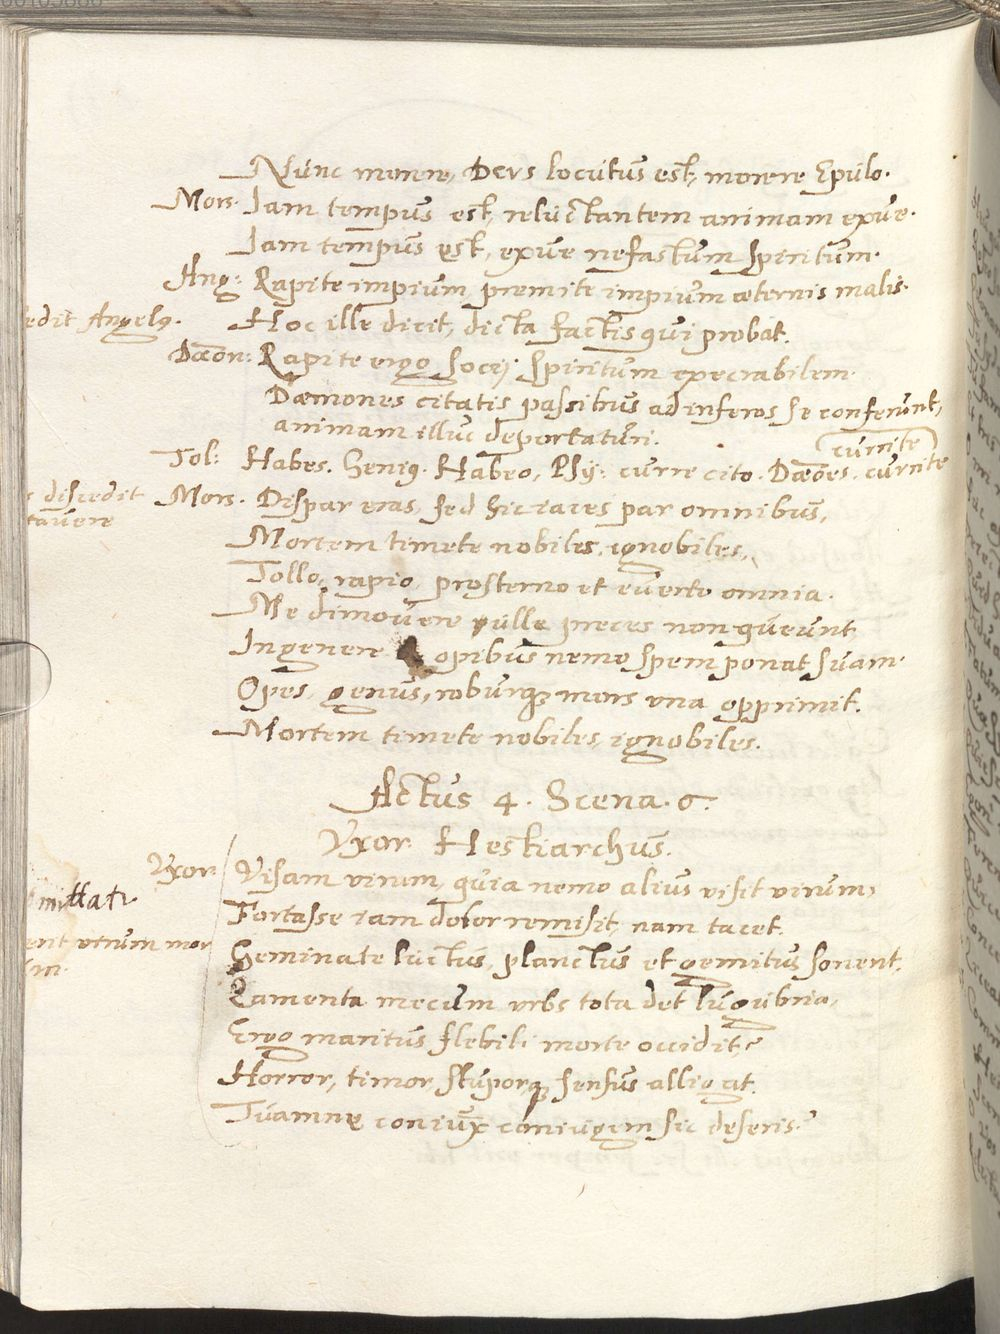 Nunc morere, Deus locutus est, morere Epulo.
Mors. Iam tempus est, reluctantem animam exue.
Iam tempus est, exue nefastum spiritum.
Ang: Rapite impium, premite impium æternis malis.
edit Angelꝰ. Hoc ille dicit, dicta factis qui probat.
Dæon: Rapite ergo socij spiritum execrabilem.
Dæmones citatis passibus ad inferos se conferunt,
animam illuc deportaturi.
currite
Tol: Habes. Seniꝰ. Habeo, Psy: curre cito. Dæoes. currite
s discedit Mors. Dispar eras, sed hic iaces par omnibus,
tauere
Mortem timete nobiles, ignobiles,
Tollo, rapio, prosterno et euerto omnia.
Me dimouere nullæ preces non queunt
In genere opibus nemo spem ponat suam.
Opes, genus, roburqꝫ mors una opprimit.
Mortem timete nobiles, ignobiles.
Actus 4. Scena. 6.
Vxor Hestiarchus.
Vxor Visam uirum, quia nemo alius uisit uirum,
mittati
Fortasse iam dolor remisit, nam tacet.
ent uirum mor
Geminate luctus, planctus et gemitus sonent,
Lamenta mecum urbs tota det lugubria,
Ergo maritus flebili morte occidit?
Horror, timor, stuporqꝫ sensus alligat.
Tuamne coniux coniugem sic deseris?